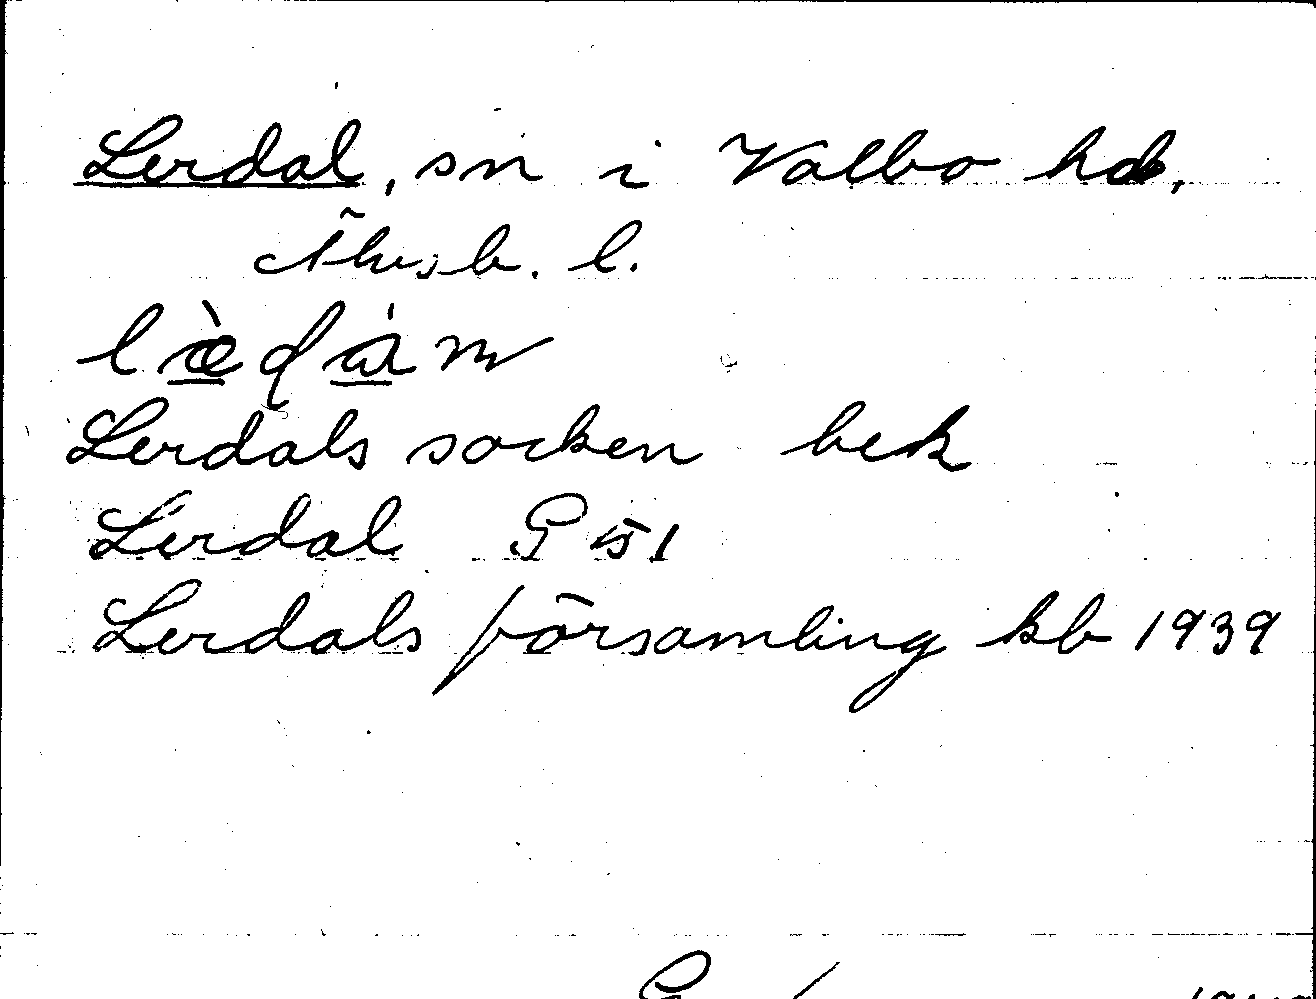 Lerdal, sn i Valbo hd,
Älvsb. l.
Lerdals socken bek
Lerdal G 51
Lerdals församling kb 1939